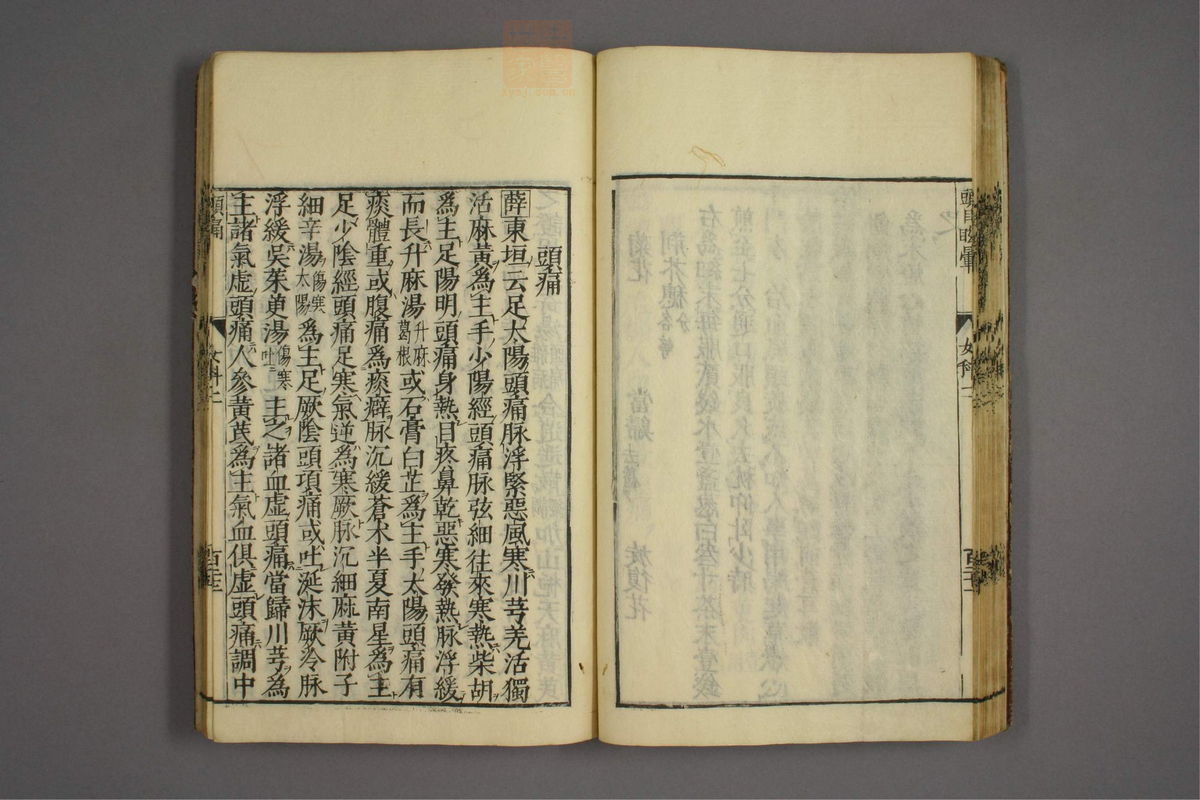 頭目眩暈
女科上
頭痛
薛東垣云足太陽頭痛脉浮緊惡風寒川芎羌活獨
活麻黃爲主手少陽經頭痛脉弦細往來寒熱柴胡
爲主足陽明頭痛身熱目疼鼻乾惡寒發熱脉浮緩
而長升麻湯升麻葛根或石膏白芷爲主手太陽頭痛有
痰體重或腹痛爲痰癖脉沉緩蒼术半夏南星爲主
足少陰經頭痛足寒氣逆爲寒厥脉沉細麻黃附子
細辛湯傷寒太陽爲主足厥陰頭項痛或吐涎沫厥冷脉
浮緩吳茱萸湯傷寒吐主之諸血虛頭痛當歸川芎爲
主諸氣虛頭痛人參黃芪爲主氣血俱虛頭痛調中
頭痛
女科上